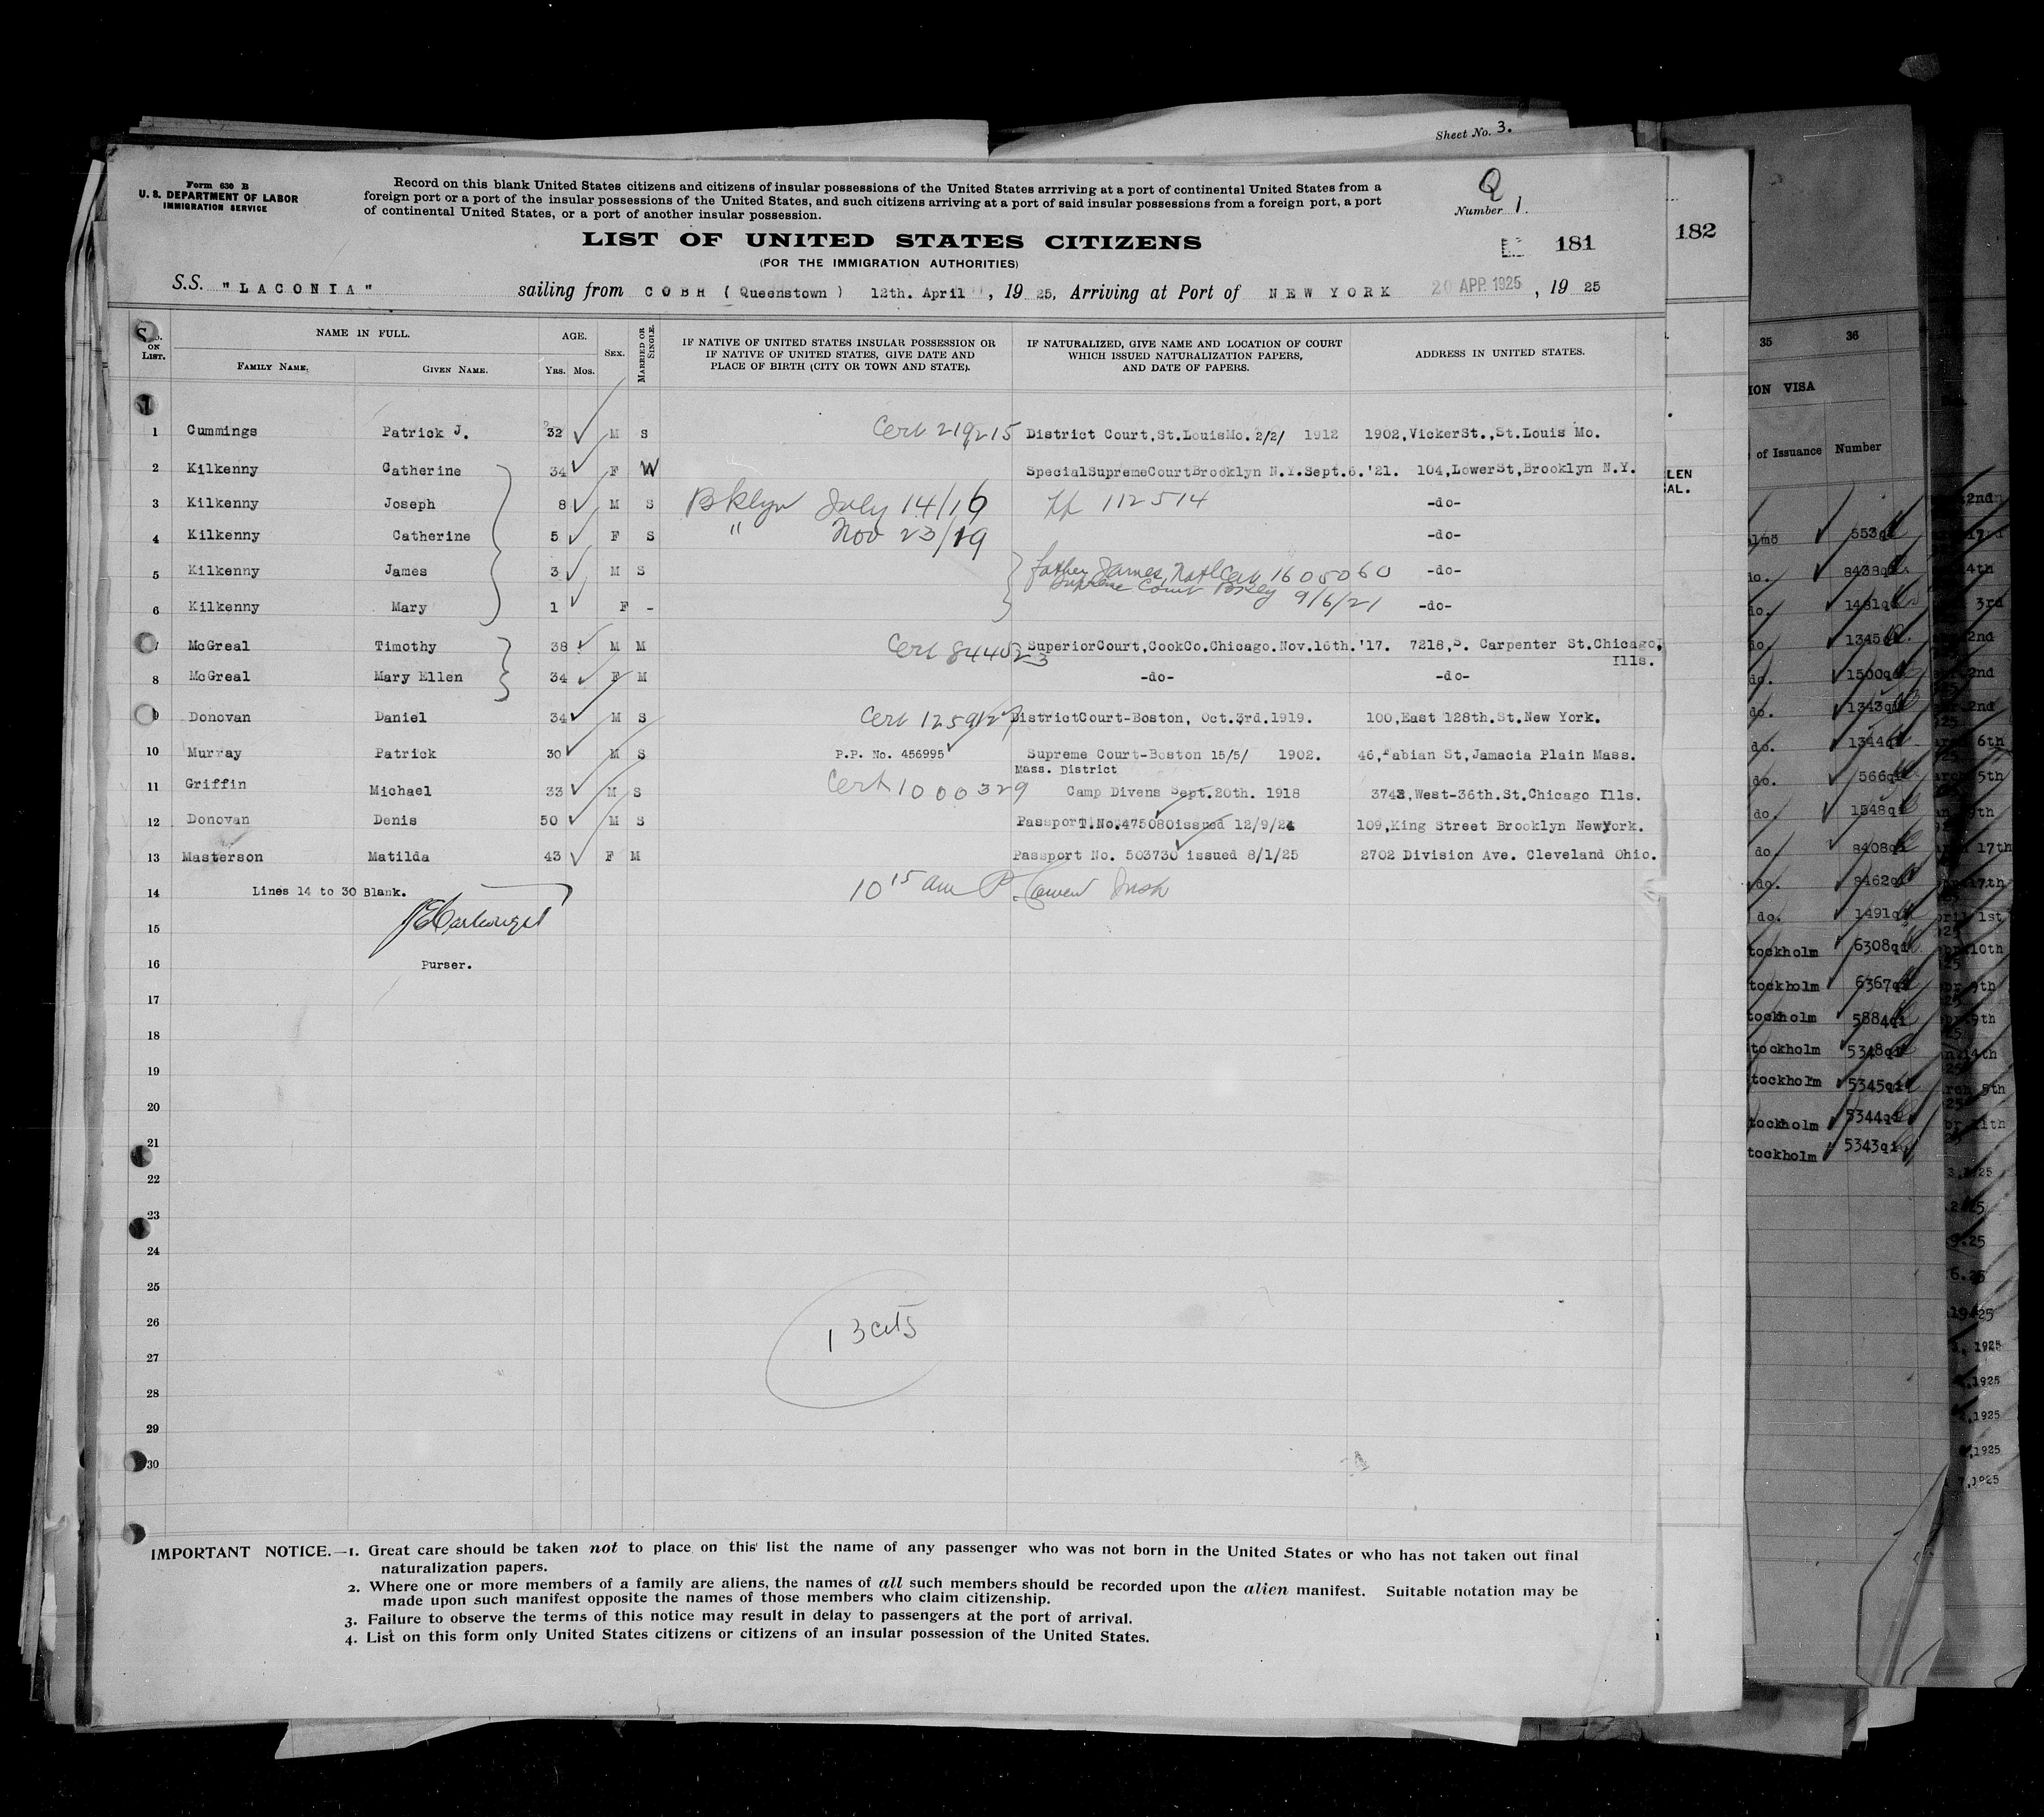 Sheet No. 3.
Form 630 B
U. S. DEPARTMENT OF LABOR
IMMIGRATION SERVICE
Record on this blank United States citizens and citizens of insular possessions of the United States arrriving at a port of continental United States from a
foreign port or a port of the insular possessions of the United States, and such citizens arriving at a port of said insular possessions from a foreign port, a port
of continental United States, or a port of another insular possession.
Q
Number 1.
LIST OF UNITED STATES CITIZENS
(FOR THE IMMIGRATION AUTHORITIES)
181
182
S.S. "LACONIA" sailing from COBH (Queenstown) 12th. April, 1925, Arriving at Port of NEW YORK 20 APR 1925, 1925
No. ON LIST.
NAME IN FULL.
FAMILY NAME.
GIVEN NAME.
AGE.
Yrs. Mos.
SEX.
MARRIED OR SINGLE.
IF NATIVE OF UNITED STATES INSULAR POSSESSION OR
IF NATIVE OF UNITED STATES, GIVE DATE AND
PLACE OF BIRTH (CITY OR TOWN AND STATE).
IF NATURALIZED, GIVE NAME AND LOCATION OF COURT
WHICH ISSUED NATURALIZATION PAPERS,
AND DATE OF PAPERS.
ADDRESS IN UNITED STATES.
1 Cummings Patrick J. 32 M S Cert 219215 District Court,St.LouisMo. 2/2/ 1912 1902,VickerSt.,St.Louis Mo.
2 Kilkenny Catherine 34 F W SpecialSupremeCourtBrooklyn N.Y.Sept.6.'21. 104,LowerSt,Brooklyn N.Y.
3 Kilkenny Joseph 8 M S Bklyn July 14/16 112514 -do-
4 Kilkenny Catherine 5 F S " Nov 23/19 -do-
5 Kilkenny James 3 M S father James Natl Cert 1605060 -do-
Supreme Court Bkly 9/6/21
6 Kilkenny Mary 1 F - -do-
7 McGreal Timothy 38 M M Cert 844023 SuperiorCourt,CookCo.Chicago.Nov.16th.'17. 7218,S. Carpenter St.Chicago,
Ills.
8 McGreal Mary Ellen 34 F M -do- -do-
9 Donovan Daniel 34 M S Cert 1259127 DistrictCourt-Boston, Oct.3rd.1919. 100,East 128th.St.New York.
10 Murray Patrick 30 M S P.P. No. 456995 Supreme Court-Boston 15/5/ 1902. 46,Fabian St,Jamacia Plain Mass.
Mass. District
11 Griffin Michael 33 M S Cert 1000329 Camp Divens Sept.20th. 1918 3743,West-36th.St.Chicago Ills.
12 Donovan Denis 50 M S Passport.No.475080issued 12/9/24 109,King Street Brooklyn NewYork.
13 Masterson Matilda 43 F M Passport No. 503730 issued 8/1/25 2702 Division Ave. Cleveland Ohio.
14 Lines 14 to 30 Blank. 10 15 am P.
15
16 Purser.
17
18
19
20
21
22
23
24
25
26 13 cits
27
28
29
30
IMPORTANT NOTICE.—1. Great care should be taken not to place on this list the name of any passenger who was not born in the United States or who has not taken out final
naturalization papers.
2. Where one or more members of a family are aliens, the names of all such members should be recorded upon the alien manifest. Suitable notation may be
made upon such manifest opposite the names of those members who claim citizenship.
3. Failure to observe the terms of this notice may result in delay to passengers at the port of arrival.
4. List on this form only United States citizens or citizens of an insular possession of the United States.
35 36
ION VISA
of Issuance Number
do. 8438qi
do. 1481qi
do. 1345
do. 1500qi
do. 1343qi
do. 1344qi
do. 566qi
do. 1548qi
do. 8408qi
do. 8462qi
do. 1491qi
tockholm 6308qi
tockholm 6367qi
tockholm 5884qi
tockholm 5348qi
tockholm 5345qi
tockholm 5344qi
tockholm 5343qi